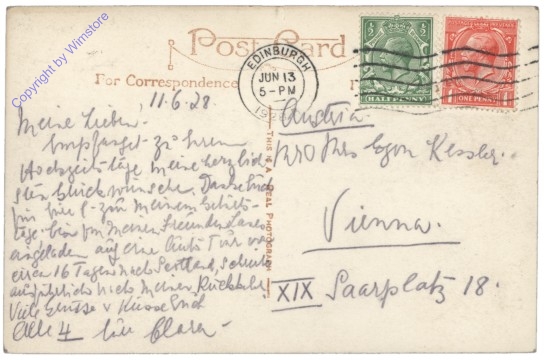 Post Card
For Correspondence
Copyright by Wimstore
EDINBURGH
JUN 13
5-PM
HALFPENNY
ONE PENNY
THIS IS A REAL PHOTOGRAPH
11.6.28.
Meine Lieben.
Empfanget zu Ihrem
Hochzeitstage meine herzlich
sten Glückwünsche. Danke Euch
für zu meinem
tage. bin von meinen Freunden
eingeladen auf eine Auto Tour von
circa 16 Tagen nach Scotland, schreibe
ausführlich nach meiner Rückkehr.
Viele Grüsse Küsse Euch
Alle 4 Clara
Austria
Mrs Egon Kessler.
Vienna.
XIX Saarplatz 18.